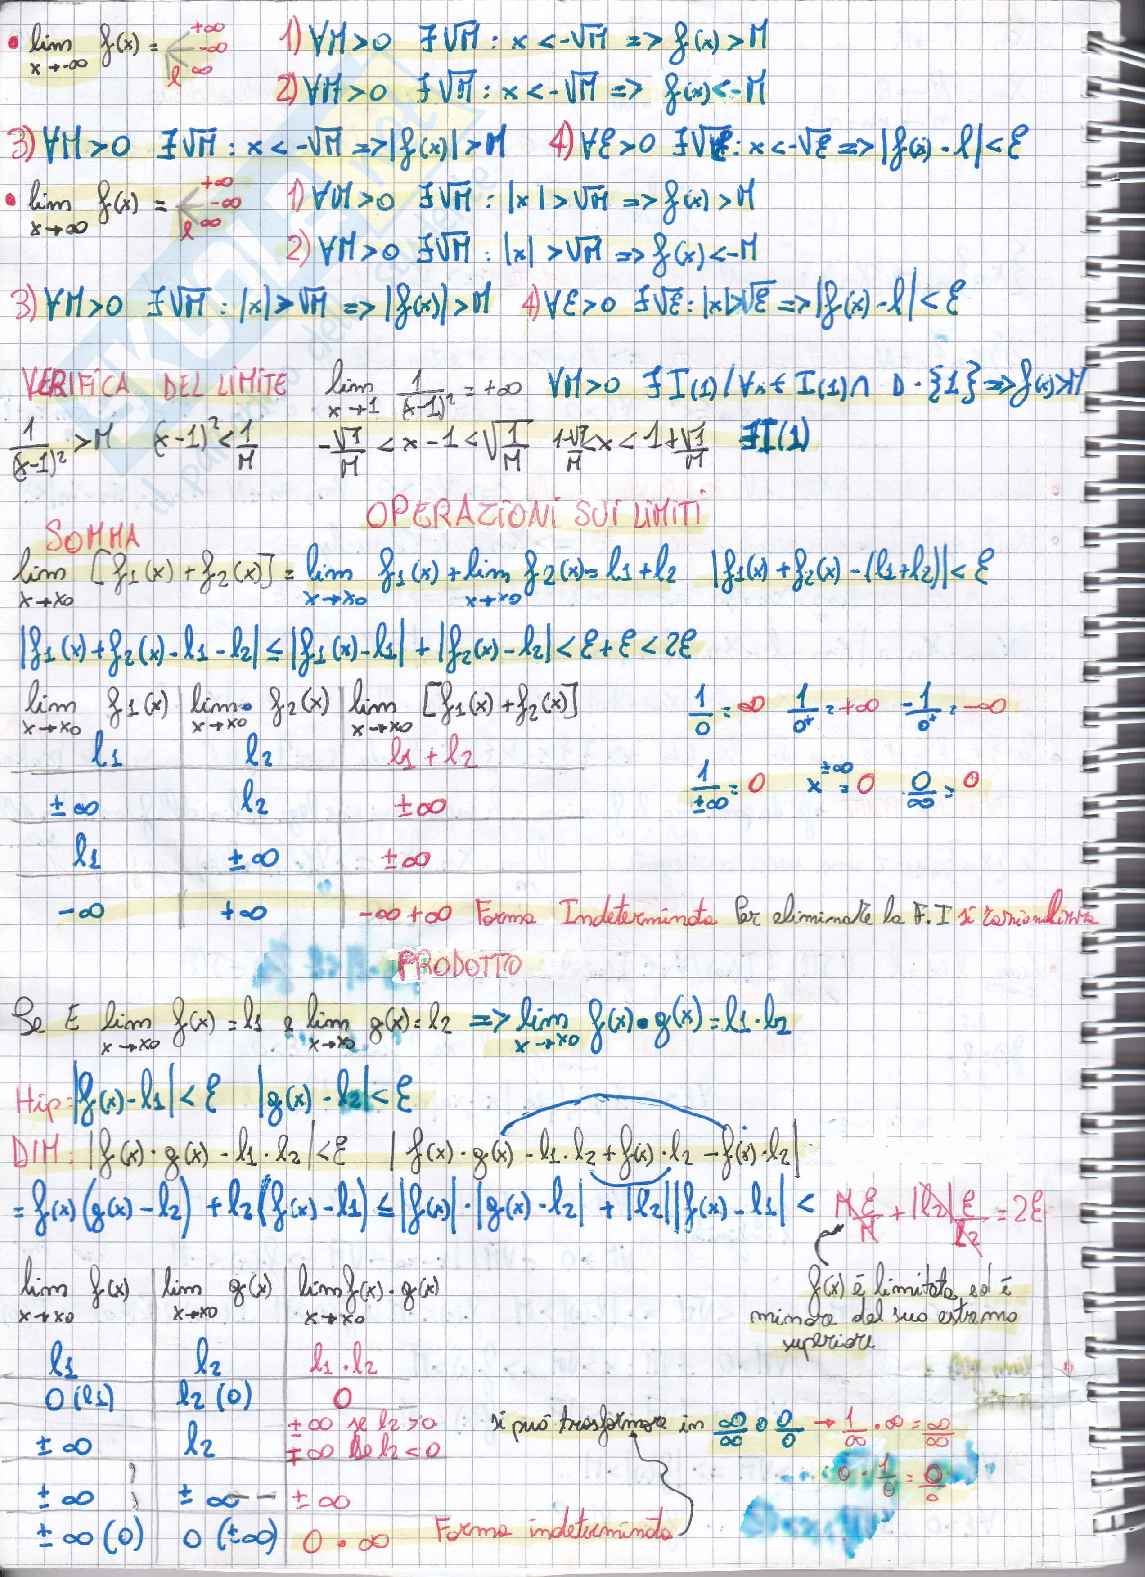 • lim x→-∞ f(x) = +∞ -∞ ∞ l 1) ∀M>0 ∃√M : x<-√M => f(x)>M
2) ∀M>0 ∃√M : x<-√M => f(x)<-M
3) ∀M>0 ∃√M : x<-√M => |f(x)|>M 4) ∀ε>0 ∃√ε : x<-√ε => |f(x)-l|<ε
• lim x→∞ f(x) = +∞ -∞ ∞ l 1) ∀M>0 ∃√M : |x|>√M => f(x)>M
2) ∀M>0 ∃√M : |x|>√M => f(x)<-M
3) ∀M>0 ∃√M : |x|>√M => |f(x)|>M 4) ∀ε>0 ∃√ε : |x|>√ε => |f(x)-l|<ε
VERIFICA DEL LIMITE lim x→1 1/(x-1)² = +∞ ∀M>0 ∃I(1) / ∀x∈I(1)∩ D-{1} => f(x)>M
1/(x-1)² >M (x-1)²<1/M -√1/M < x-1 < √1/M 1-√1/M < x < 1+√1/M ∃I(1)
OPERAZIONI SUI LIMITI
SOMMA
lim x→x0 [f1(x)+f2(x)] = lim x→x0 f1(x) + lim x→x0 f2(x) = l1+l2 |f1(x)+f2(x)-(l1+l2)|<ε
|f1(x)+f2(x)-l1-l2| ≤ |f1(x)-l1| + |f2(x)-l2| < ε+ε < 2ε
lim x→x0 f1(x) lim x→x0 f2(x) lim x→x0 [f1(x)+f2(x)] 1/0 = ∞ 1/0⁺ = +∞ -1/0⁺ = -∞
l1 l2 l1+l2
±∞ l2 ±∞ 1/±∞ = 0 x^±∞ = 0 0/∞ = 0
l1 ±∞ ±∞
-∞ +∞ -∞+∞ Forma Indeterminata Per eliminare la F.I si razionalizza
PRODOTTO
Se E lim x→x0 f(x)=l1 e lim x→x0 g(x)=l2 => lim x→x0 f(x)•g(x)=l1·l2
Hip: |f(x)-l1|<ε |g(x)-l2|<ε
DIM: |f(x)·g(x)-l1·l2|<ε |f(x)·g(x)-l1·l2+f(x)·l2-f(x)·l2|
= f(x)(g(x)-l2) + l2(f(x)-l1) ≤ |f(x)|·|g(x)-l2| + |l2||f(x)-l1| < M ε/M + |l2| ε/l2 = 2ε
f(x) è limitata, ed è
minore del suo estremo
superiore
lim x→x0 f(x) lim x→x0 g(x) lim x→x0 f(x)·g(x)
l1 l2 l1·l2
0(l1) l2(0) 0
±∞ l2 ±∞ se l2>0
∓∞ se l2<0
si può trasformare in ∞/∞ o 0/0 → 1/∞ · ∞ = ∞/∞
0 · 1/0 = 0/0
±∞ ±∞ ±∞
±∞(0) 0(±∞) 0•∞ Forma indeterminata